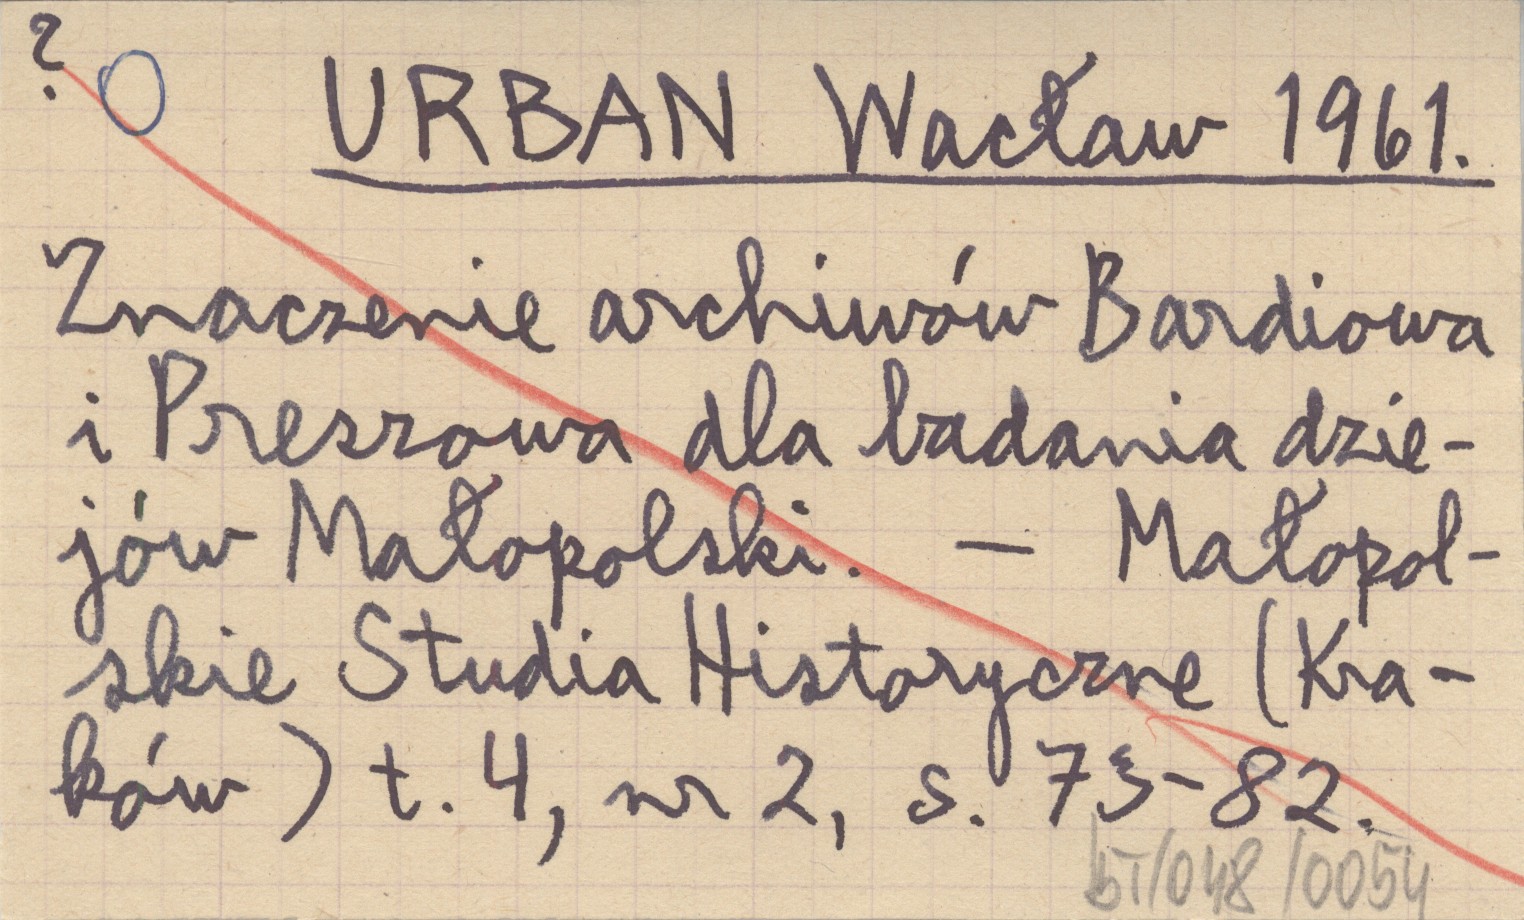 ?
URBAN Wacław 1961.
Znaczenie archiwów Bardiowa
i Preszowa dla badania dzie-
jów Małopolski. — Małopol-
skie Studia Historyczne (Kra-
ków) t. 4, nr 2, s. 73-82.
bT/048/0054